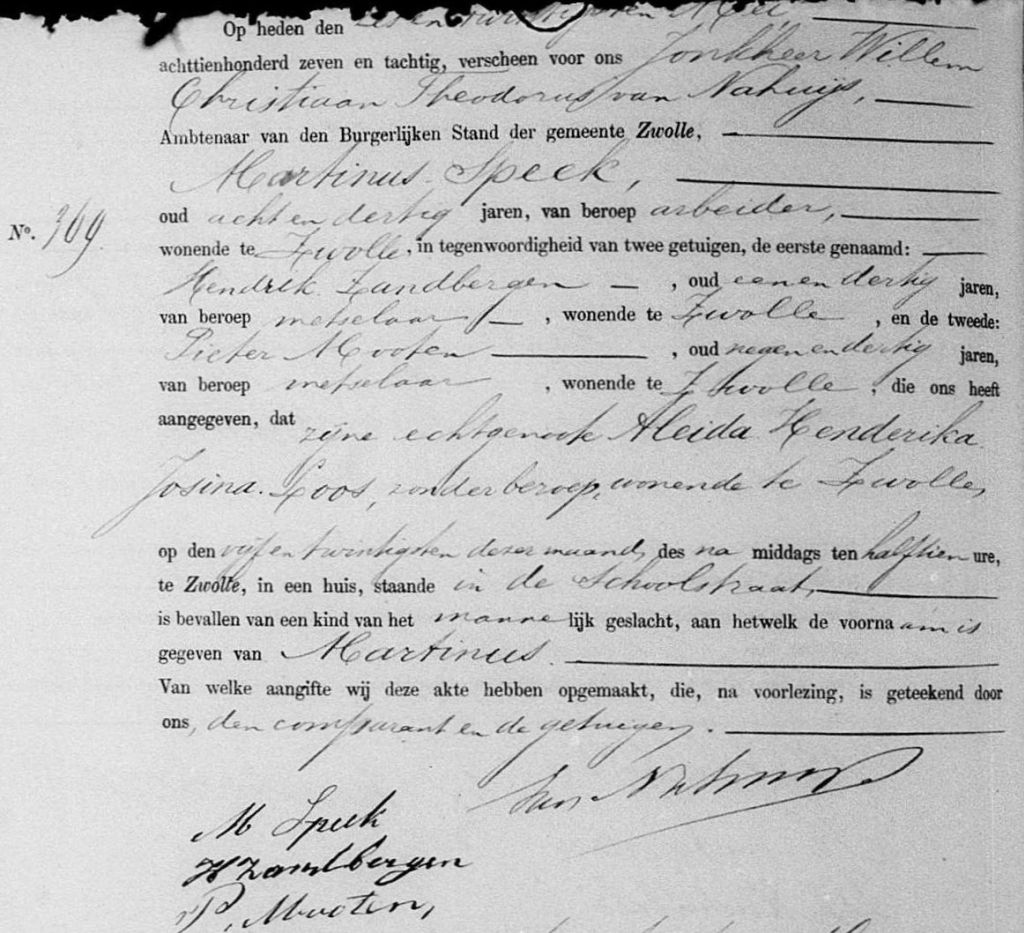 Op heden den zevenentwintigsten Mei
achttienhonderd zeven en tachtig, verscheen voor ons Jonkheer Willem
Christiaan Theodorus van Nahuijs,
Ambtenaar van den Burgerlijken Stand der gemeente Zwolle,
Martinus Speek,
oud acht en dertig jaren, van beroep arbeider,
No. 369.
wonende te Zwolle, in tegenwoordigheid van twee getuigen, de eerste genaamd:
Hendrik Zandbergen, oud eenendertig jaren,
van beroep metselaar, wonende te Zwolle, en de tweede:
Pieter Mooten, oud negenendertig jaren,
van beroep metselaar, wonende te Zwolle, die ons heeft
aangegeven, dat zijne echtgenoote Aleida Henderika
Josina Loos, zonder beroep, wonende te Zwolle,
op den vijfentwintigsten dezer maand, des na middags ten halftien ure,
te Zwolle, in een huis, staande in de Schoolstraat,
is bevallen van een kind van het manne lijk geslacht, aan hetwelk de voorna am is
gegeven van Martinus.
Van welke aangifte wij deze akte hebben opgemaakt, die, na voorlezing, is geteekend door
ons, den comparant en de getuigen.
van Nahuijs
M Speek
H Zandbergen
P. Mooten,